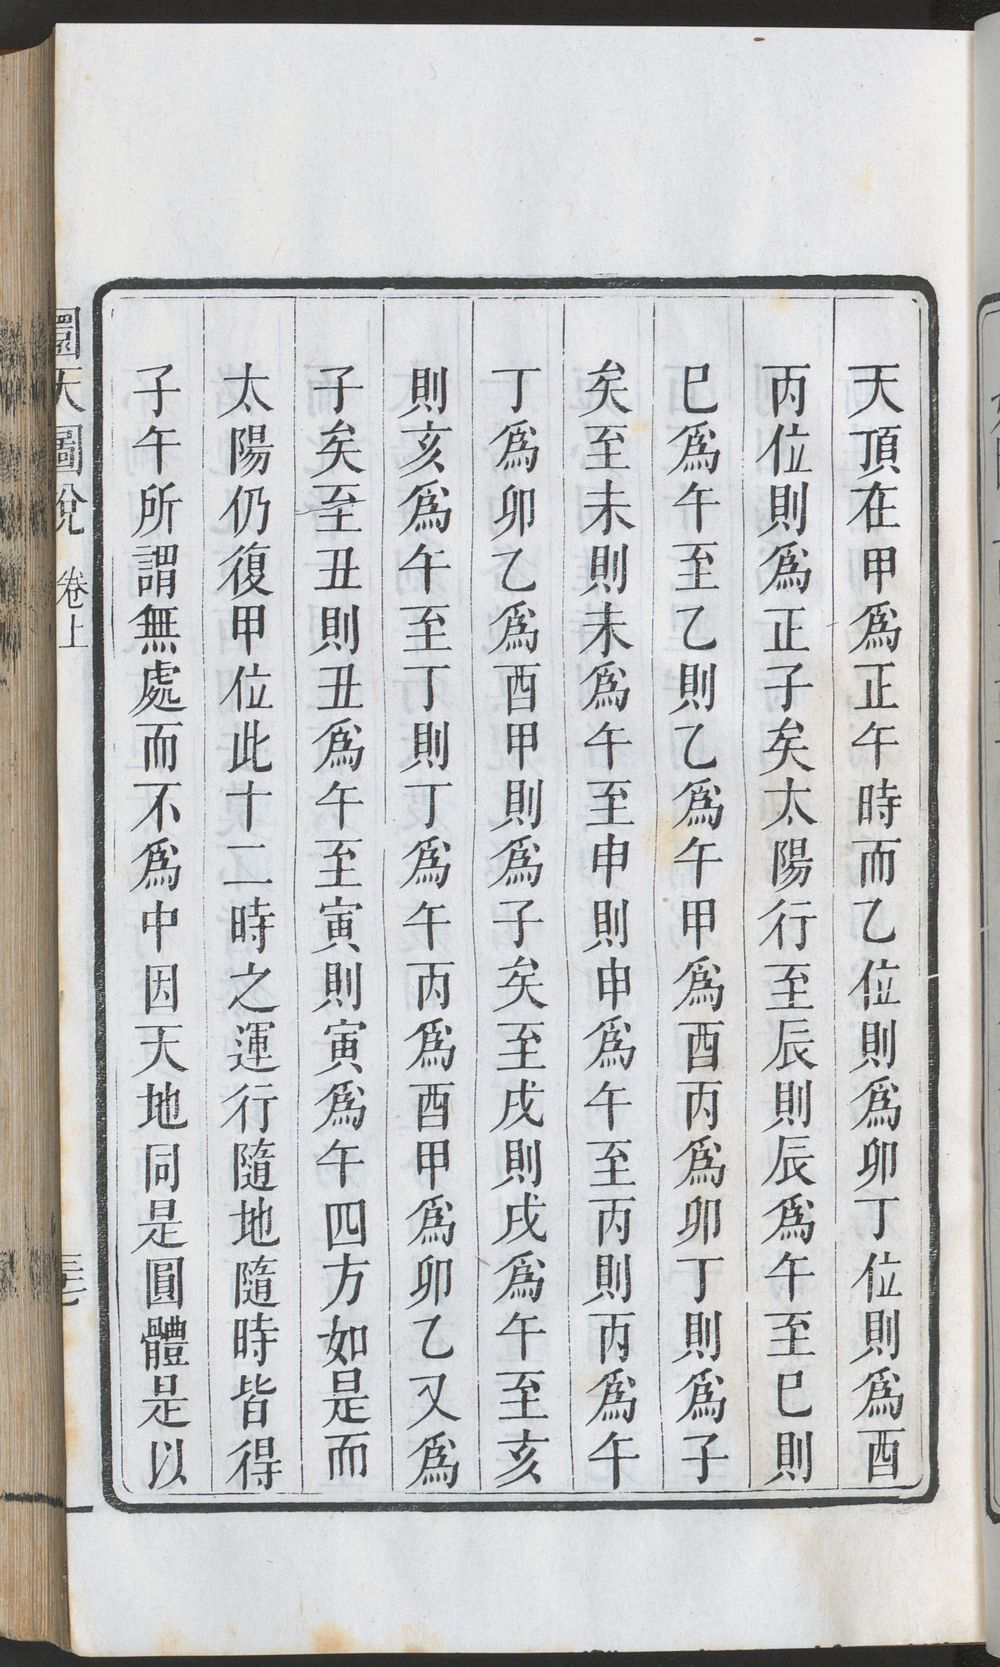 天頂在甲爲正午時而乙位則爲卯丁位則爲酉
丙位則爲正子矣太陽行至辰則辰爲午至巳則
巳爲午至乙則乙爲午甲爲酉丙爲卯丁則爲子
矣至未則未爲午至申則申爲午至丙則丙爲午
丁爲卯乙爲酉甲則爲子矣至戌則戌爲午至亥
則亥爲午至丁則丁爲午丙爲酉甲爲卯乙又爲
子矣至丑則丑爲午至寅則寅爲午四方如是而
太陽仍復甲位此十二時之運行隨地隨時皆得
子午所謂無處而不爲中因天地同是圓體是以
圜天圖說 卷上 三七